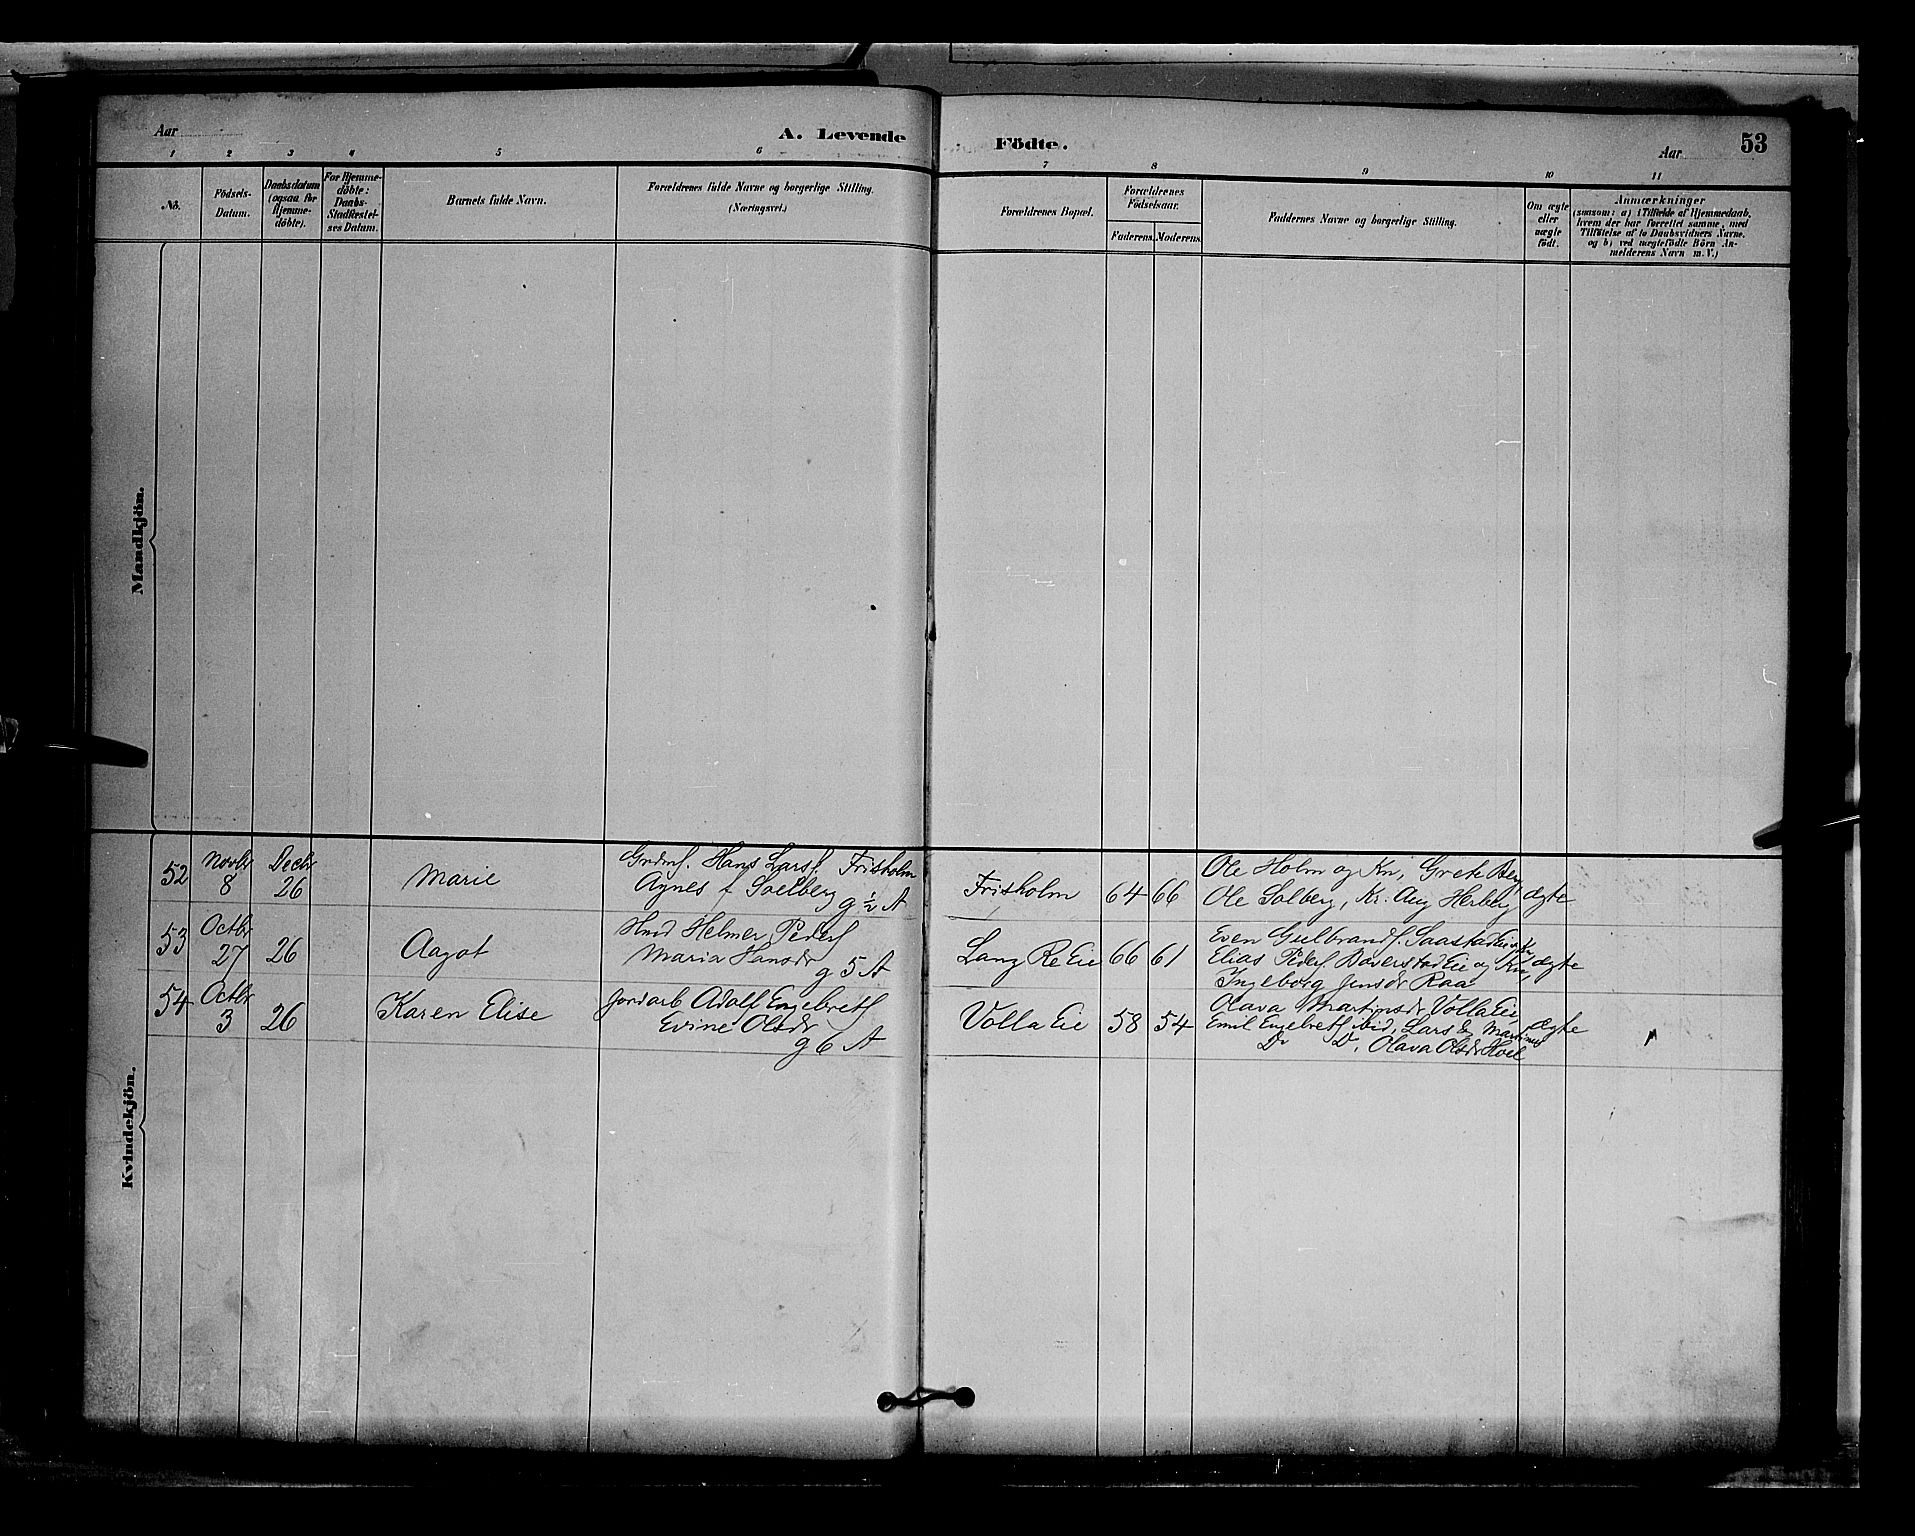 Aar
A. Levende
Födte.
Aar
53
1 2 3 4 5 6 7 8 9 10 11
No.
Födsels-
Datum.
Daabsdatum
(ogsaa for
Hjemme-
döbte).
For Hjemme-
döbte:
Daabs-
Stadfæstel-
ses Datum.
Barnets fulde Navn.
Forældrenes fulde Navne og borgerlige Stilling.
(Næringsvei.)
Forældrenes Bopæl.
Forældrenes
Födselsaar.
Faderens. Moderens.
Faddernes Navne og borgerlige Stilling.
Om ægte
eller
uægte
födt.
Anmærkninger
(saasom: a) i Tilfælde af Hjemmedaab,
hvem der har forrettet samme, med
Tilföielse af to Daabsvidners Navne.
og b) ved uægtefödte Börn An-
melderens Navn m. V.)
Mandkjön.
Kvindekjön.
52
Novbr
8
Decbr
26
Marie
Grdmf. Hans Larsf. Frisholm
Agnes f Soelberg
g ½ A
Frisholm
64 66
Ole Holm og Kn, Grete Berg
Ole Solberg, Kr. Aug Herberg
ægte
53
Octbr
27
26
Aagot
Hmd Helmer Pedersf
Maria Hansdr
g 5 A
Lang Re Eie
66 61
Even Gulbrandsf. Saastad Eie og Kn
Elias Pedersf. Bæverstad Eie og Kn,
Ingeborg Jensdr Raa
ægte
54
Octbr
3
26
Karen Elise
Jordarb Adolf Engebretsf
Evine Olsdr
g 6 A
Volla Eie
58 54
Olava Martinsdr Volla Eie
Emil Engebretsf ibid, Lars & Martinus
Do Do, Olava Olsdr Hoel
ægte